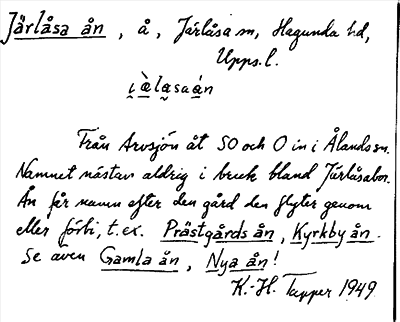 Järlåsa ån, å, Järlåsa sn, Hagunda hd,
Upps.l.
i̯ὰla̰saán
Från Arvsjön åt SO och O in i Ålands sn.
Namnet nästan aldrig i bruk bland Järlåsabor.
Ån får namn efter den gård den flyter genom
eller förbi, t.ex. Prästgårds ån, Kyrkby ån.
Se även Gamla ån, Nya ån!
K.-H. Tapper 1949